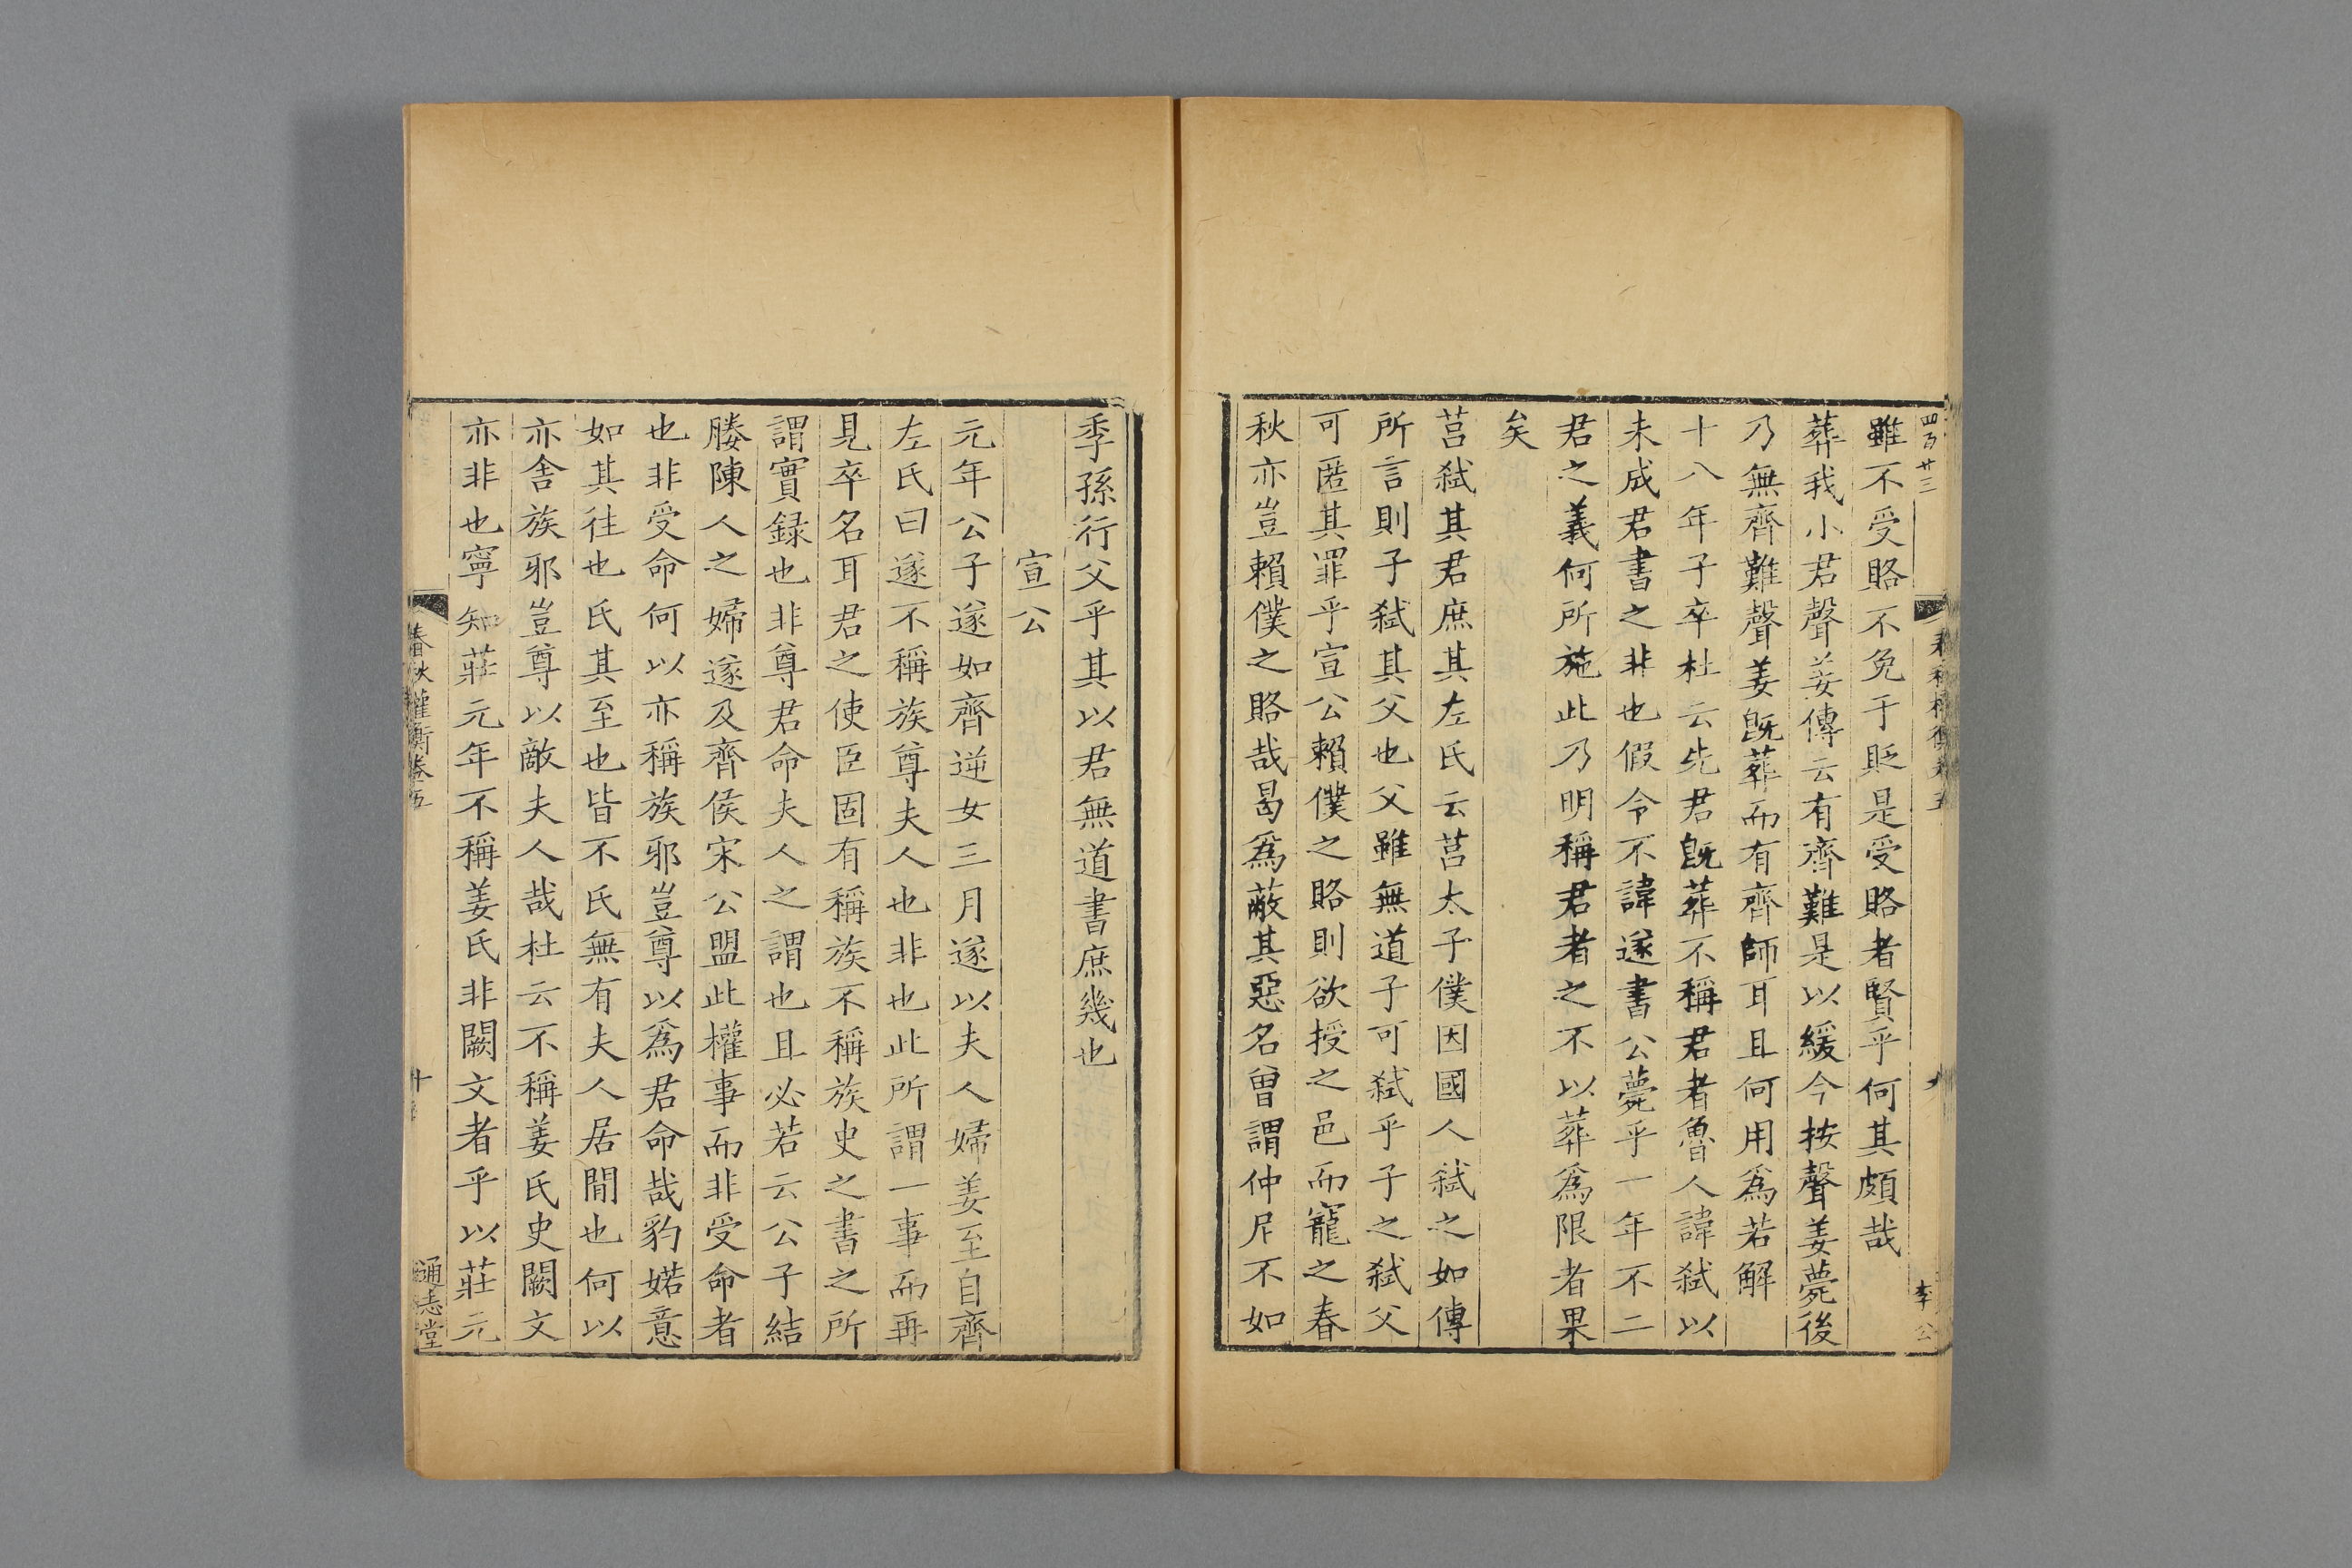 四百廿三
春秋權衡卷五
李公
雖不受賂不免于貶是受賂者賢乎何其頗哉
葬我小君聲姜傳云有齊難是以緩今按聲姜薨後
乃無齊難聲姜旣葬而有齊師耳且何用爲若解
十八年子卒杜云先君旣葬不稱君者魯人諱弑以
未成君書之非也假令不諱遂書公薨乎一年不二
君之義何所施此乃明稱君者之不以葬爲限者果
矣
莒弑其君庶其左氏云莒太子僕因國人弑之如傳
所言則子弑其父也父雖無道子可弑乎子之弑父
可匿其罪乎宣公賴僕之賂則欲授之邑而寵之春
秋亦豈賴僕之賂哉曷爲蔽其惡名曾謂仲尼不如
季孫行父乎其以君無道書庶幾也
宣公
元年公子遂如齊逆女三月遂以夫人婦姜至自齊
左氏曰遂不稱族尊夫人也非也此所謂一事而再
見卒名耳君之使臣固有稱族不稱族史之書之所
謂實録也非尊君命夫人之謂也且必若云公子結
媵陳人之婦遂及齊侯宋公盟此權事而非受命者
也非受命何以亦稱族邪豈尊以爲君命哉豹婼意
如其往也氏其至也皆不氏無有夫人居間也何以
亦舍族邪豈尊以敵夫人哉杜云不稱姜氏史闕文
亦非也寧知莊元年不稱姜氏非闕文者乎以莊元
春秋權衡卷五
十
通志堂